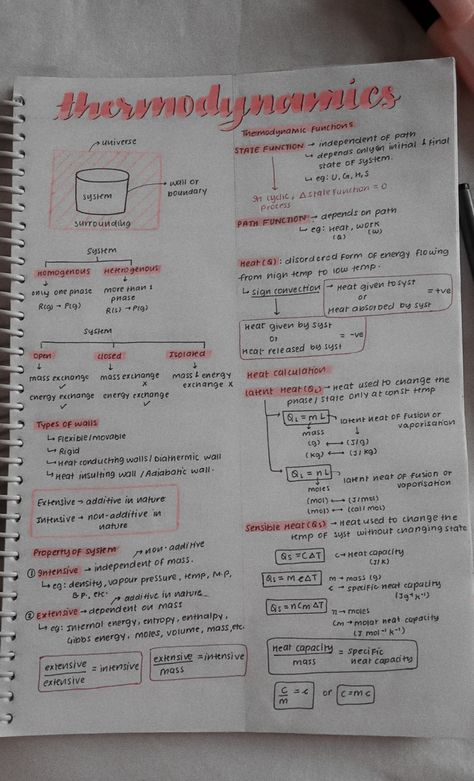 thermodynamics
universe
system
wall or
boundary
surrounding
System
Homogenous
Heterogenous
only one phase
more than 1
phase
R(g) → P(g)
R(s) → P(g)
System
Open
closed
Isolated
mass exchange ✓
mass exchange x
mass & energy
exchange x
energy exchange ✓
energy exchange ✓
Types of walls
↳ Flexible/movable
↳ Rigid
↳ Heat conducting walls/Diathermic wall
↳ Heat insulting wall /Adiabatic wall.
Extensive → additive in nature
Intensive → non-additive in
nature
Property of system
non-additive
① Intensive → independent of mass.
↳ eg: density, vapour pressure, temp, M.P,
B.P, etc.
additive in nature
② Extensive → dependent on mass
↳ eg: Internal energy, entropy, enthalpy,
Gibbs energy, moles, volume, mass, etc.
extensive / extensive = intensive
extensive / mass = intensive
Thermodynamic Functions
STATE FUNCTION → independent of path
↳ depends only on initial & final
state of system.
↳ eg: U, G, H, S
In cyclic, Δ state function = 0
process
PATH FUNCTION → depends on path
↳ eg: Heat, work
(Q) (W)
Heat (Q) : disordered form of energy flowing
from high temp to low temp.
↳ sign convection
Heat given to syst
or = +ve
Heat absorbed by syst
Heat given by syst
or = -ve
Heat released by syst
Heat calculation
latent Heat (QL) → Heat used to change the
phase / state only at const temp
QL = mL
latent heat of fusion or
vaporisation
mass
(g) ⟷ (J/g)
(kg) ⟷ (J/kg)
QL = nL
latent heat of fusion or
vaporisation
moles
(mol) ⟷ (J/mol)
(mol) ⟷ (cal/mol)
Sensible Heat (Qs) → Heat used to change the
temp of syst without changing state
Qs = CΔT
C → Heat capacity
(J/K)
Qs = mcΔT
m → mass (g)
c → specific heat capacity
(Jg⁻¹K⁻¹)
Qs = nCmΔT
n → moles
Cm → molar heat capacity
(J mol⁻¹K⁻¹)
Heat capacity / mass = specific
heat capacity
C/m = c or C = mc